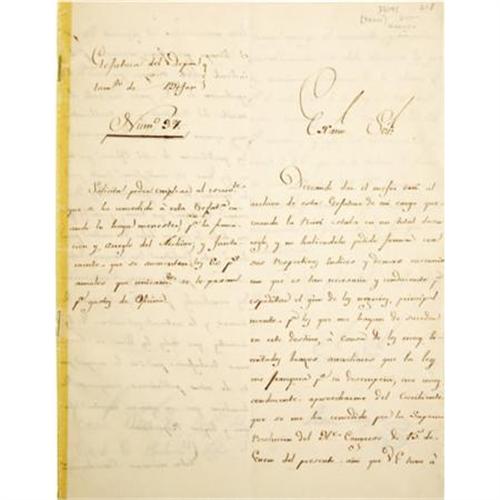 Gefatura del Depart
tam.to de Bejar
Num.o 37.
Solicita poder emplear al escrivte
que a she concedido á esta Gefatura
cuando lo haya menester pa la forma
cion y arreglo del Archivo; y junta
mente que se aumenten los
anuales que unicamte se le pasan
pa gastos de Oficina.
Exmo Sor
Deseando dar el mejor
archivo de esta Gefatura de mi cargo que
cuando la Recivi estaba en un total desar
reglo, y no habiendole podido formar con
sus respectivos Indices y demas necesario
que es tan necesario y conducente pa
espeditar el giro de los negocios, principal
mente pa los que me hayan de suceder
en este destino, á causa de los muy
limitados brazos ausiliares que la ley
me franquea pa su desempeño, me
conducente aprovecharme del Escribiente
que se me ha concedido por la Suprema
Resolucion del He. Congreso de 15 de
Enero del presente año que V.E. tuvo á